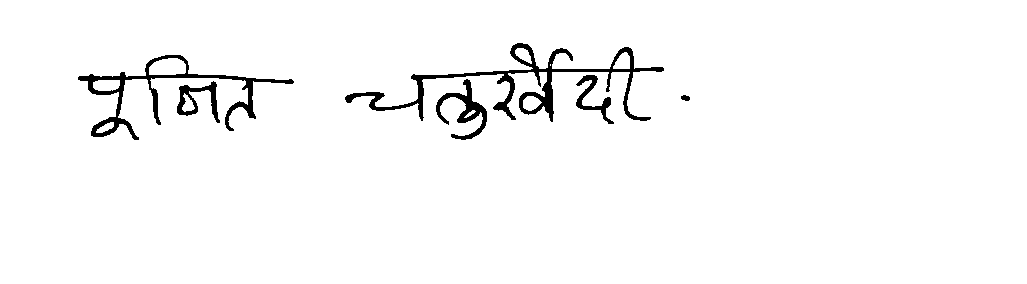 पूजित चतुर्वेदी.